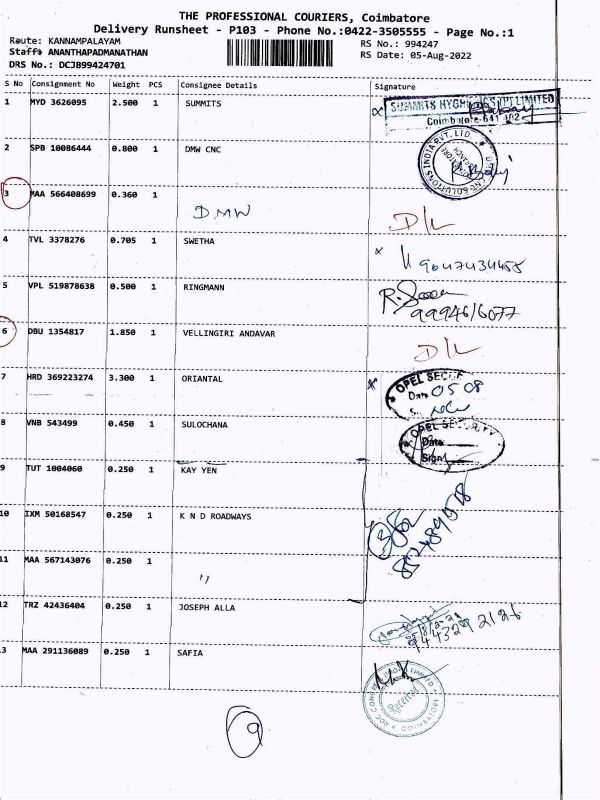 THE PROFESSIONAL COURIERS, Coimbatore
Delivery Runsheet - P103 - Phone No.:0422-3505555 - Page No.:1
Route: KANNAMPALAYAM
RS No.: 994247
Staff: ANANTHAPADMANATHAN
RS Date: 05-Aug-2022
DRS No.: DCJB99424701
S No Consignment No Weight PCS Consignee Details Signature
1 MYD 3626095 2.500 1 SUMMITS
2 SPB 10086444 0.800 1 DMW CNC
3 MAA 566408699 0.360 1
D.MW D/L
4 TVL 3378276 0.705 1 SWETHA
5 VPL 519878638 0.500 1 RINGMANN
9994616077
6 DBU 1354817 1.850 1 VELLINGIRI ANDAVAR
D/L
7 HRD 369223274 3.300 1 ORIANTAL
OPEL
Date 05 08
8 VNB 543499 0.450 1 SULOCHANA
OPEL SECURITY
Date
Sign
9 TUT 1004060 0.250 1 KAY YEN
10 IXM 50168547 0.250 1 K N D ROADWAYS
11 MAA 567143076 0.250 1
"
12 TRZ 42436404 0.250 1 JOSEPH ALLA
3 MAA 291136089 0.250 1 SAFIA
Received
9